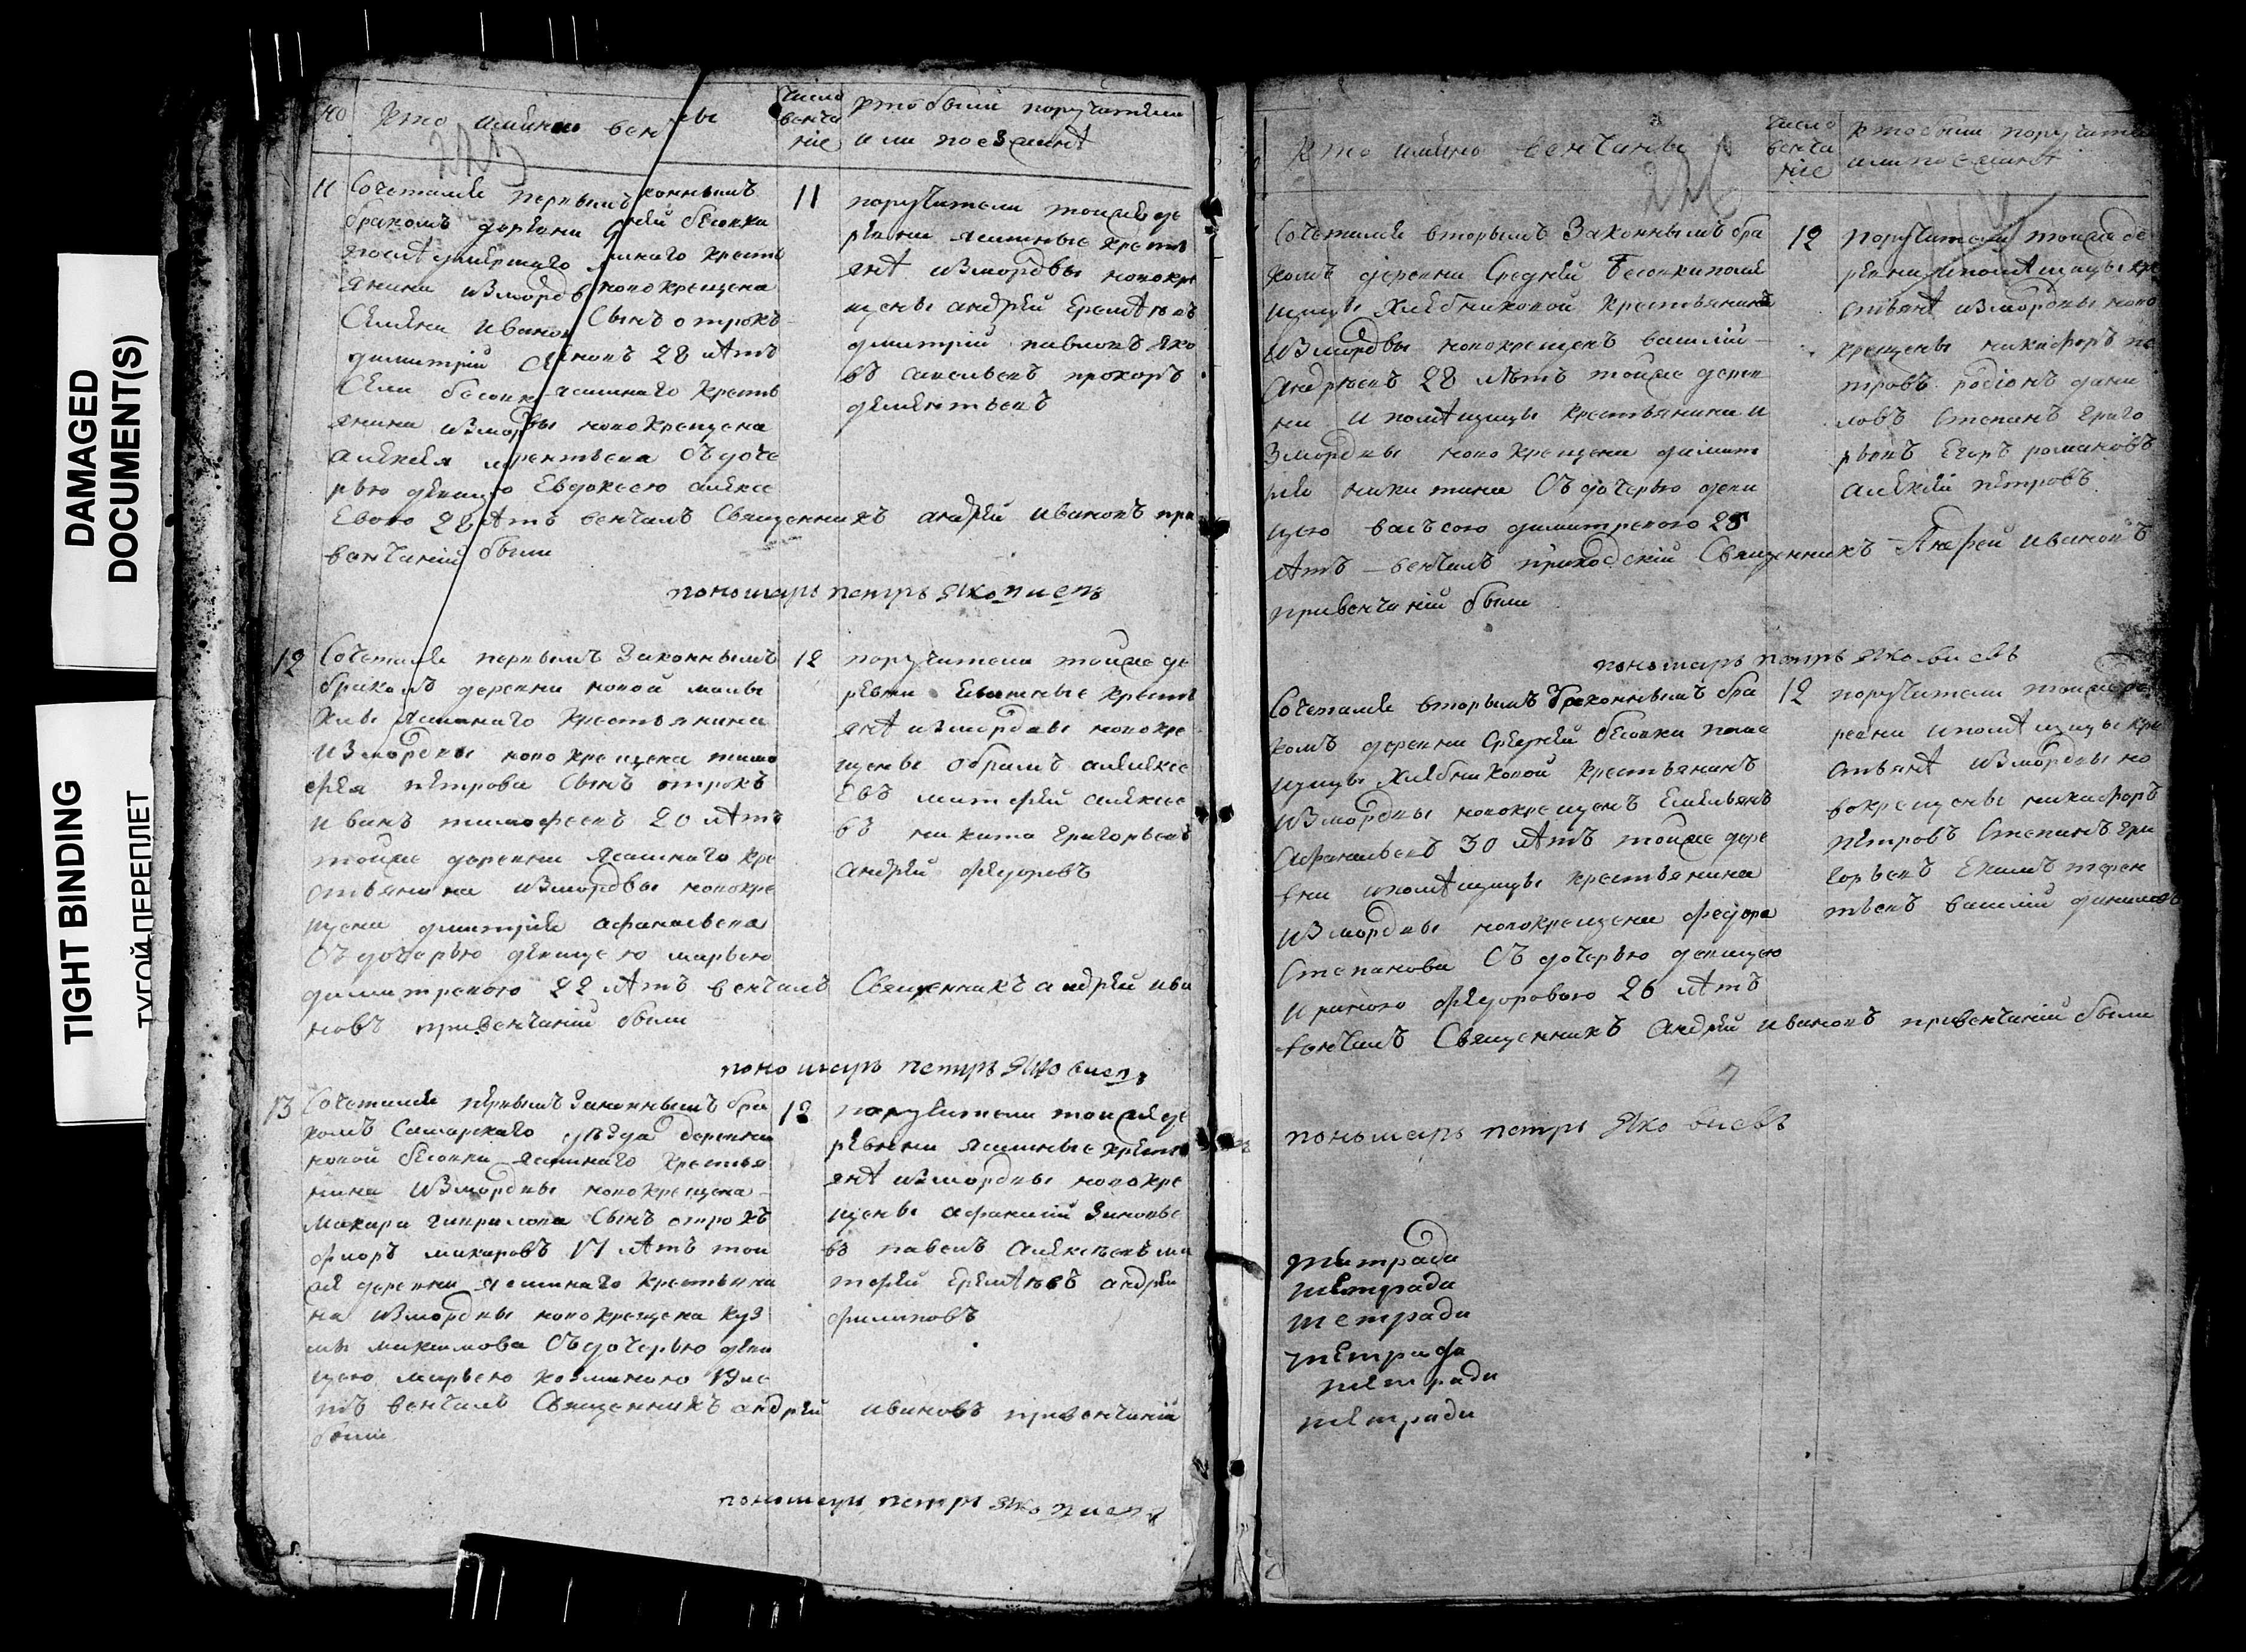 DAMAGED
DOCUMENT(S)
TIGHT BINDING
ТУГОЙ ПЕРЕПЛЕТ
но
Кто имянно вен
ны
число
венча
ніе
кто были поручители
или поезжанѣ
11
Сочетался первымъ
коннымъ
бракомъ деревни
ней бесовки
умершаго
шнаго кресть
янина измордв
новокрещена
Семена Иванов
Сынъ отрокъ
димитрій Се
новъ 28 лѣтъ
бесовк
ясашнаго кресть
янина измордвы новокрещена
алексея
съ доче
рью девицею Евдокеею алексе
Евою 22 лѣтъ венчалъ Священникъ андрей ивановъ при
венчаній были
11
поручители тойже де
ревни ясашные кресть
янѣ измордвы новокре
щены андрей Еремѣевъ
димитрій павловъ яко
въ савельевъ прохоръ
дементьевъ
пономарь петръ яковлевъ
12
Сочетался первымъ Законнымъ
бракомъ деревни новой
ясашнаго крестьянина
измордвы новокрещена тимо
фея петрова Сынъ отрокъ
иванъ тимофеевъ 20 лѣтъ
тойже деревни ясашнаго кре
стьянина измордвы новокре
щена димитрія афанасьева
Съ дочерью девицею марьею
димитревою 22 лѣтъ венчалъ Священникъ андрей ива
новъ привенчаній были
12
поручители тойже де
ревни ясашные кресть
янѣ измордвы новокре
щены абрамъ алексе
Евъ матфей алексее
въ никита григорьевъ
андрей федоровъ
пономарь петръ яковлевъ
13
Сочетался первымъ Законнымъ бра
комъ Самарскаго уѣзда деревни
новой бесовки ясашнаго крестья
нина измордвы новокрещена
макара гаврилова Сынъ отрокъ
флоръ макаровъ 17 лѣтъ той
же деревни ясашнаго крестьяни
на измордвы новокрещена куз
мы максимова Съ дочерью деви
цею марьею козминою 19 ле
тъ венчалъ Священникъ андрей ивановъ привенчаній
были
12
поручители тойже де
ревни ясашные кресть
янѣ измордвы новокре
щены афанасій Зиновье
въ павелъ Алексеевъ ма
тфей Еремѣевъ андрей
филиповъ
пономарь петръ яковлевъ
Кто имянно венчаны
число
венча
ніе
кто были поручители
или поезжанѣ
Сочетался вторымъ Законнымъ бра
комъ деревни Средней Бесовки поме
щицы Хлебниковой крестьянинъ
измордвы новокрещенъ василій
Андреевъ 28 лѣтъ тойже дерев
ни и помѣщицы крестьянина и
Змордвы новокрещена димит
рія никитина Съ дочерью деви
цею васъсою димитревою 25
лѣтъ венчалъ приходскій Священникъ Андрей ивановъ
привенчаній были
12
поручители тойже де
ревни ипомѣщицы кре
стьянѣ измордвы ново
крещены никифоръ пе
тровъ родіонъ дани
ловъ Степанъ григо
рьевъ Егоръ романовъ
алексей петровъ
пономарь петръ яковлевъ
Сочетался вторымъ Законнымъ бра
комъ деревни Средней бесовки поме
щицы Хлебниковой крестьянинъ
измордвы новокрещенъ Емельянъ
Афанасьевъ 30 лѣтъ тойже дере
вни ипомѣщицы крестьянина
измордвы новокрещена федора
Степанова Съ дочерью девицею
Ириною федоровою 26 лѣтъ
венчалъ Священникъ Андрей ивановъ привенчаній были
12
поручители тойже де
ревни ипомѣщицы кре
стьянѣ измордвы но
вокрещены никифоръ
петровъ Степанъ гри
горьевъ Екимъ терен
тьевъ василій даниловъ
пономарь петръ яковлевъ
тетради
тетради
тетради
тетради
тетради
тетради